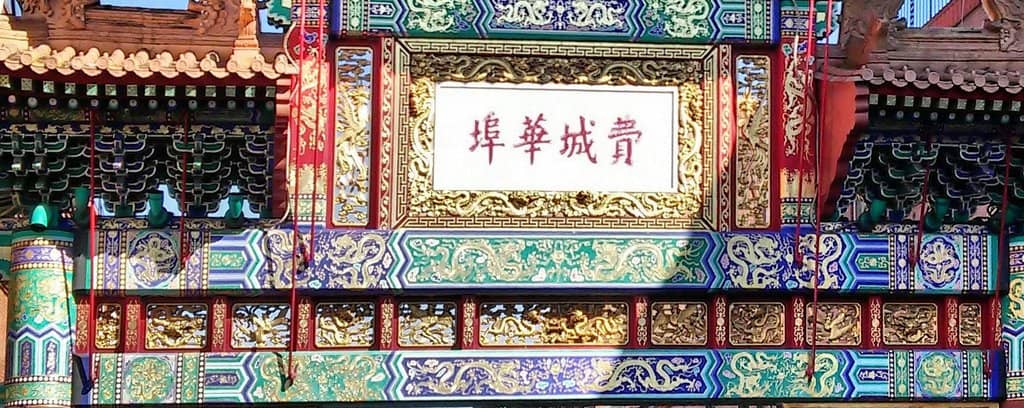 費城華埠